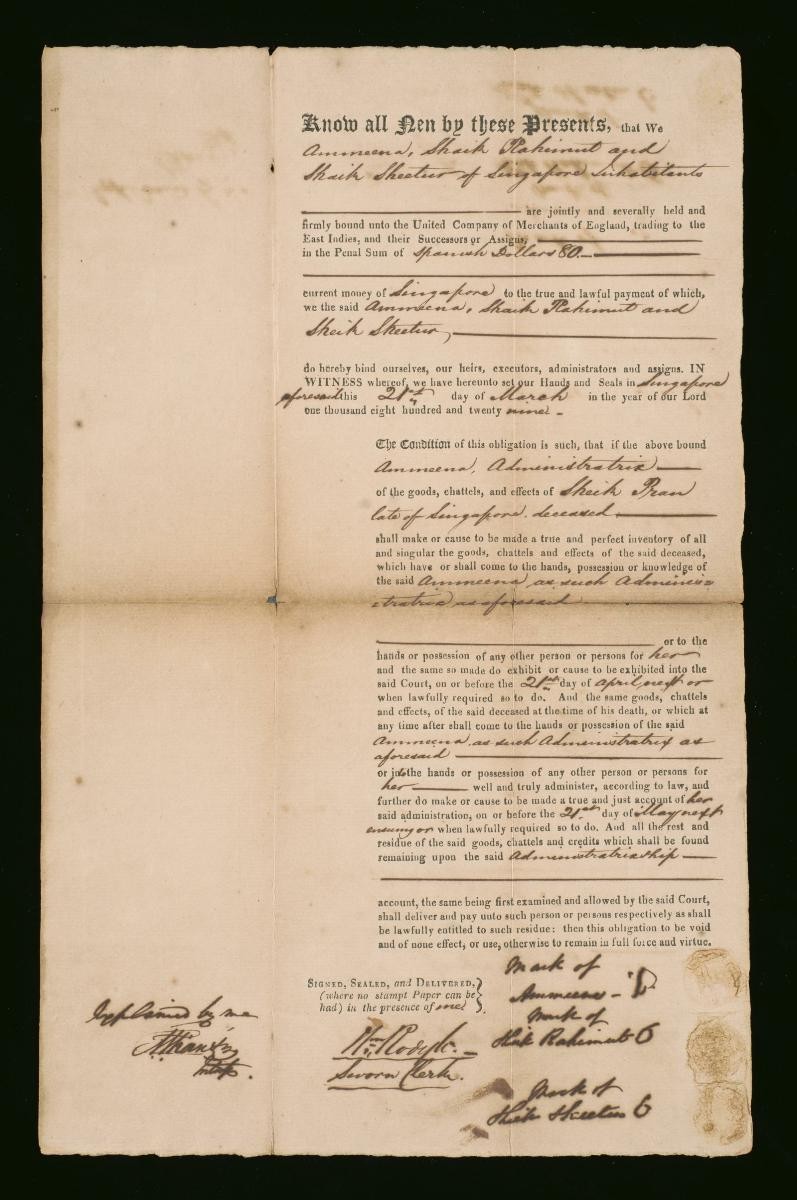 Know all Men by these Presents, that We
Ammeena, Shaik Rahimut and
Shaik Skeetur of Singapore Inhabitants
are jointly and severally held and
firmly bound unto the United Company of Merchants of England, trading to the
East Indies, and their Successors or Assigns,
in the Penal Sum of Spanish Dollars 80.
current money of Singapore to the true and lawful payment of which,
we the said Ammeena, Shaik Rahimut and
Sheik Skeetur,
do hereby bind ourselves, our heirs, executors, administrators and assigns. IN
WITNESS whereof, we have hereunto set our Hands and Seals in Singapore
aforesaid this 21st day of March in the year of our Lord
one thousand eight hundred and twenty nine
The Condition of this obligation is such, that if the above bound
Ammeena, Administratrix
of the goods, chattels, and effects of Sheik Pran
late of Singapore deceased
shall make or cause to be made a true and perfect inventory of all
and singular the goods, chattels and effects of the said deceased,
which have or shall come to the hands, possession or knowledge of
the said Ammeena as such Adminis=
tratrix as aforesaid
or to the
hands or possession of any other person or persons for her
and the same so made do exhibit or cause to be exhibited into the
said Court, on or before the 21st day of April next or
when lawfully required so to do. And the same goods, chattels
and effects, of the said deceased at the time of his death, or which at
any time after shall come to the hands or possession of the said
Ammeena as such Administratrix as
aforesaid
or into the hands or possession of any other person or persons for
her well and truly administer, according to law, and
further do make or cause to be made a true and just account of her
said administration, on or before the 21st day of May next
ensuing or when lawfully required so to do. And all the rest and
residue of the said goods, chattels and credits which shall be found
remaining upon the said Administratrixship
account, the same being first examined and allowed by the said Court,
shall deliver and pay unto such person or persons respectively as shall
be lawfully entitled to such residue: then this obligation to be void
and of none effect, or use, otherwise to remain in full force and virtue.
SIGNED, SEALED, and DELIVERED,
(where no stampt Paper can be
had) in the presence of me
Mark of
Ammeena
Mark of
Sheik Rahimut
Mark of
Sheik Skeetur
Explained by me
Sworn Clerk.